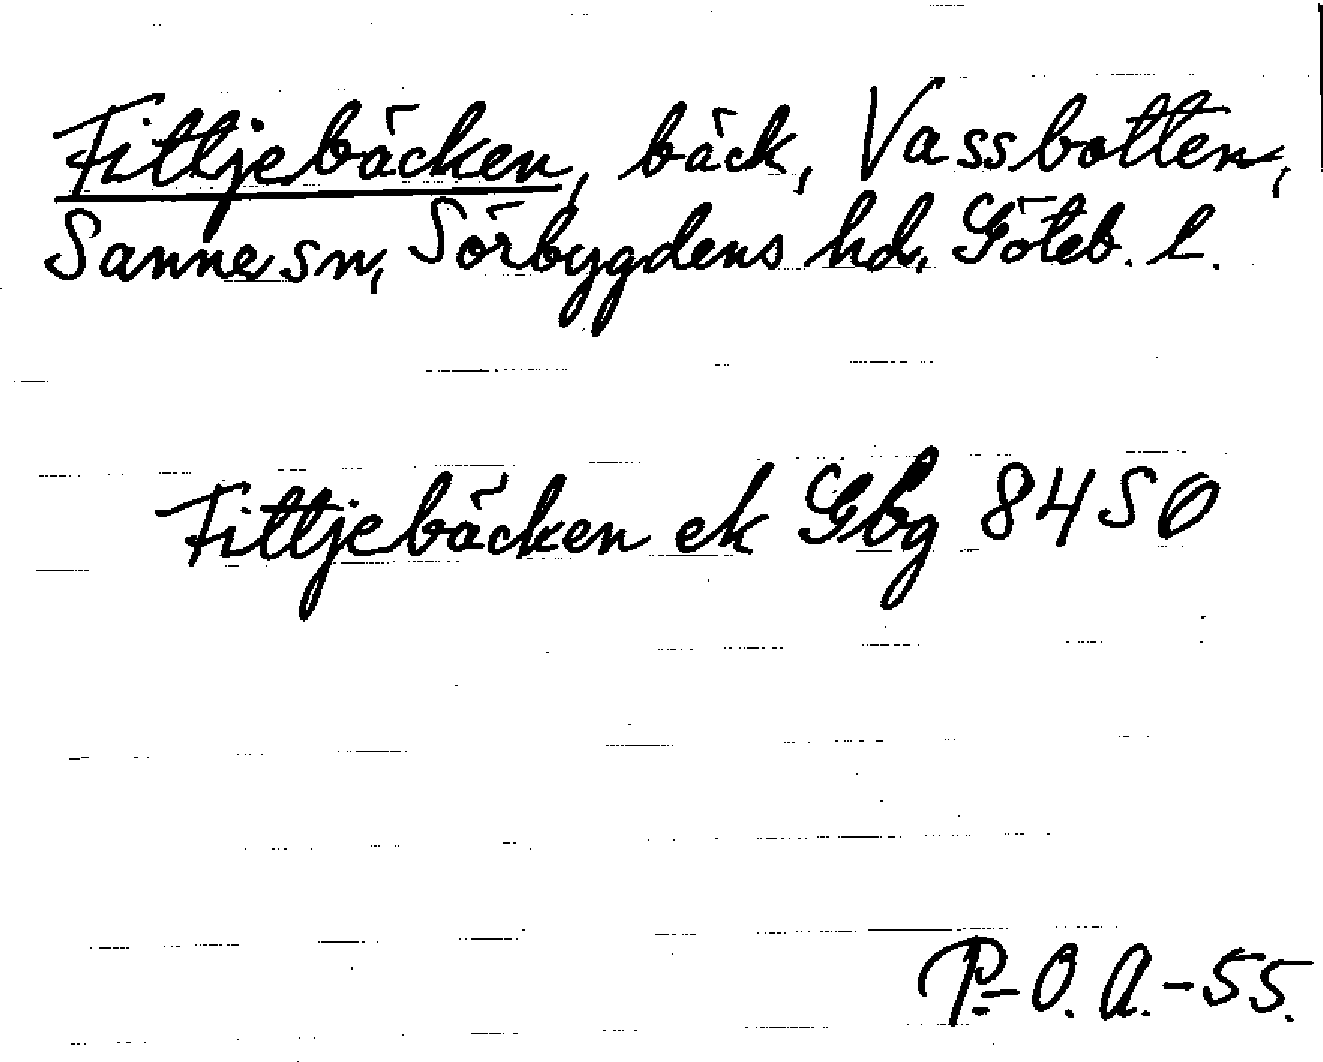 Fittjebäcken, bäck, Vassbotten,
Sanne sn, Sörbygdens hd, Göteb. l.
Fittjebäcken ek Gbg 8450
P.-O. A.-55.